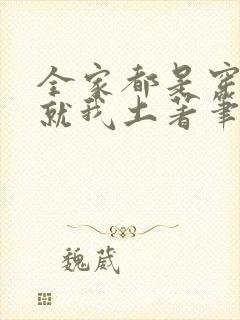 全家都是穿
就我土著筆
魏葳